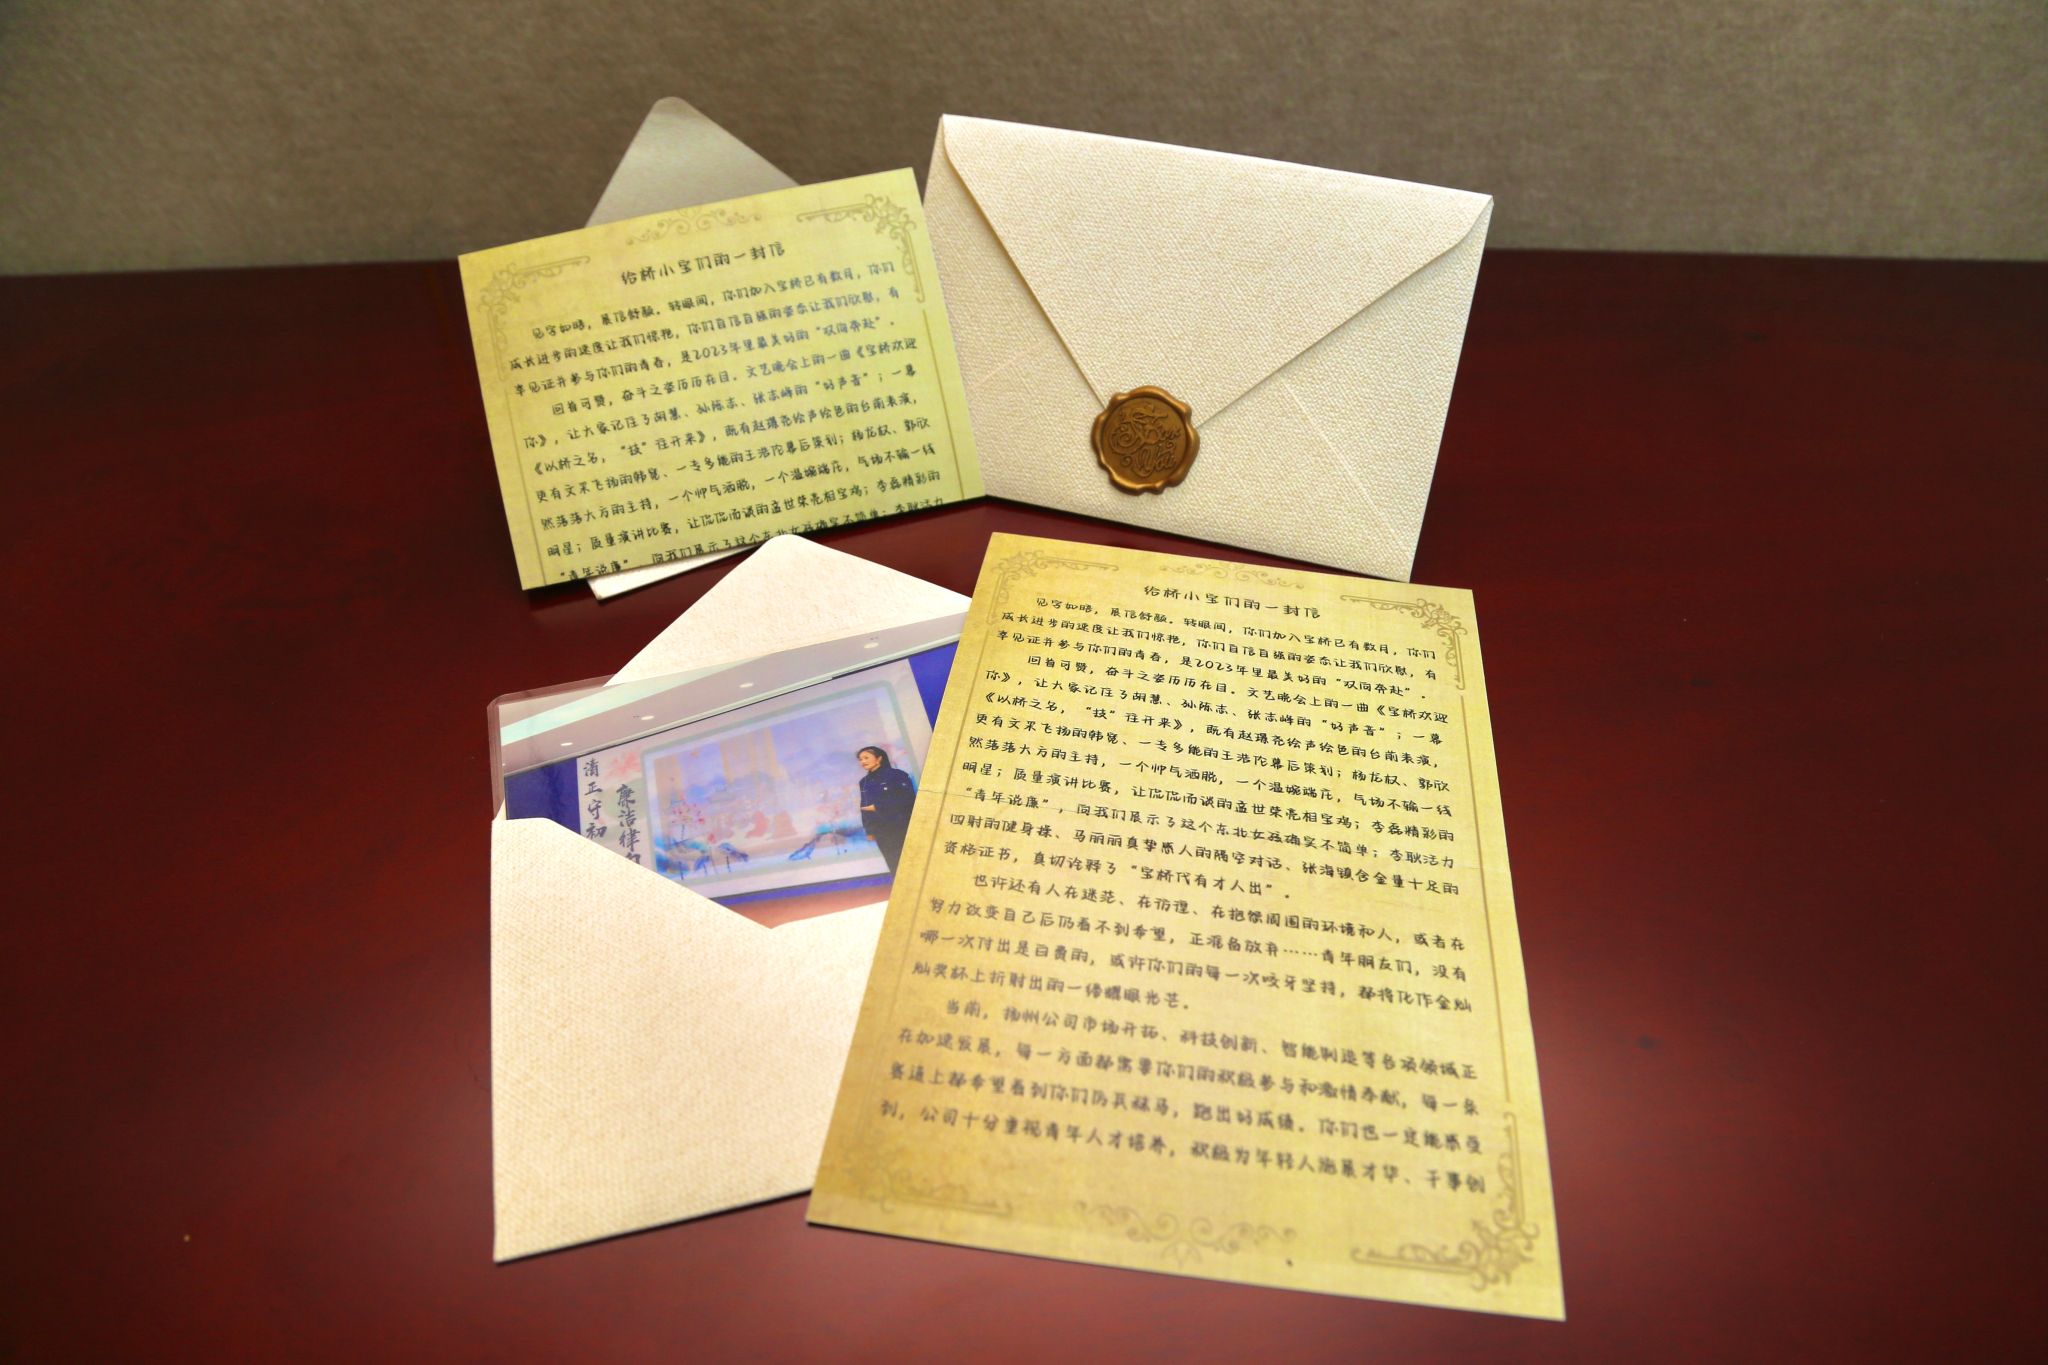 给桥小宝们的一封信
见字如晤，展信舒颜。转眼间，你们加入宝桥已有数月，你们
成长进步的速度让我们惊艳，你们自信自强的姿态让我们欣慰，有
幸见证并参与你们的青春，是2023年里最美好的“双向奔赴”。
回首可赞，奋斗之姿历历在目。文艺晚会上的一曲《宝桥欢迎
你》，让大家记住了胡慧、孙陈志、张志峰的“好声音”；一幕
《以桥之名，“技”往开来》，既有赵璟尧绘声绘色的台前表演，
更有文采飞扬的韩宽、一专多能的王浩陀幕后策划；杨龙权、郭欣
然落落大方的主持，一个帅气洒脱，一个温婉端庄，气场不输一线
明星；质量演讲比赛，让侃侃而谈的孟世荣亮相宝鸡；李磊精彩的
“青年说廉”，向我们展示了这个东北女孩确实不简单；李耿活力
给桥小宝们的一封信
见字如晤，展信舒颜。转眼间，你们加入宝桥已有数月，你们
成长进步的速度让我们惊艳，你们自信自强的姿态让我们欣慰，有
幸见证并参与你们的青春，是2023年里最美好的“双向奔赴”。
回首可赞，奋斗之姿历历在目。文艺晚会上的一曲《宝桥欢迎
你》，让大家记住了胡慧、孙陈志、张志峰的“好声音”；一幕
《以桥之名，“技”往开来》，既有赵璟尧绘声绘色的台前表演，
更有文采飞扬的韩宽、一专多能的王浩陀幕后策划；杨龙权、郭欣
然落落大方的主持，一个帅气洒脱，一个温婉端庄，气场不输一线
明星；质量演讲比赛，让侃侃而谈的孟世荣亮相宝鸡；李磊精彩的
“青年说廉”，向我们展示了这个东北女孩确实不简单；李耿活力
四射的健身操、马丽丽真挚感人的隔空对话、张海镇含金量十足的
资格证书，真切诠释了“宝桥代有才人出”。
也许还有人在迷茫、在彷徨、在抱怨周围的环境和人，或者在
努力改变自己后仍看不到希望，正准备放弃……青年朋友们，没有
哪一次付出是白费的，或许你们的每一次咬牙坚持，都将化作金灿
灿奖杯上折射出的一缕耀眼光芒。
当前，扬州公司市场开拓、科技创新、智能制造等各项领域正
在加速发展，每一方面都需要你们的积极参与和激情奉献，每一条
赛道上都希望看到你们厉兵秣马，跑出好成绩。你们也一定能感受
到，公司十分重视青年人才培养，积极为年轻人施展才华、干事创
清正守初
廉洁律
for
You